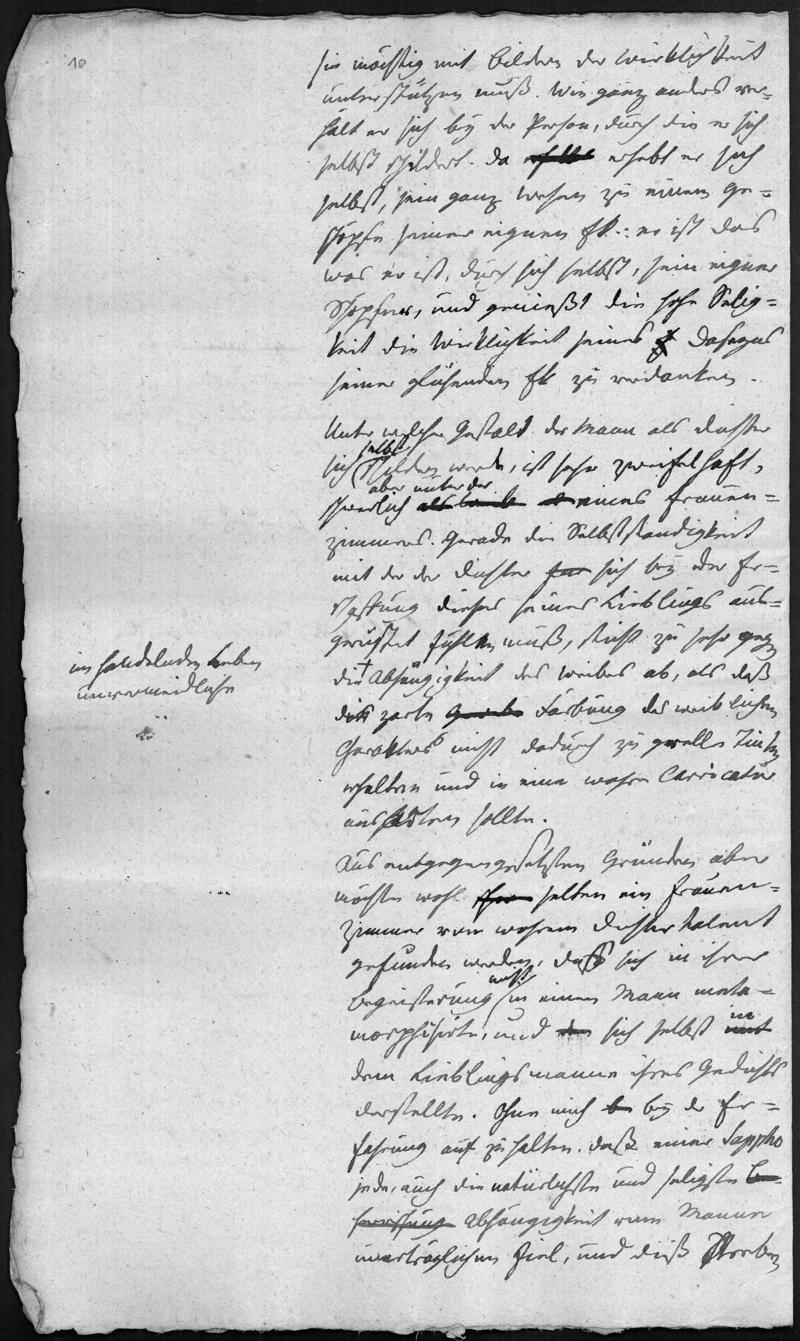 10
sie mächtig mit Bildern der Wirklichkeit
unterstützen muß. Wie ganz anders ver=
hält er sich bey der Person, durch die er sich
selbst schildert. da erhebt er sich
selbst, sein ganz Wesen zu einem Ge=
schöpfe seiner eignen Fk.: er ist das
was er ist, durch sich selbst, sein eigner
Schöpfer, und genießt die hohe Selig=
keit die Wirklichkeit seines Daseyns
seiner glühenden Fk zu verdanken.
Unter welcher Gestalt der Mann als Dichter
sich selbst schildern werde, ist sehr zweifelhaft,
schwerlich aber unter der eines Frauen=
zimmers. Gerade die Selbstständigkeit
mit der der Dichter sich bey der Er=
schaffung dieses seines Lieblings aus=
gerüstet fühlen muß, sticht zu sehr gegen
die + Abhängigkeit des Weibes ab, als daß
die zarte Färbung des weiblichen
Charakters nicht dadurch zu grelle Tinten
erhalten und in eine wahre Carricatur
ausarten sollte.
im handelnden Leben
unvermeidliche
Aus entgegengesetzten Gründen aber
möchte wohl selten ein Frauen=
zimmer von wahrem Dichtertalent
gefunden werden, das sich in ihrer
Begeisterung nicht in einen Mann meta=
morphisirte, und sich selbst in
dem Lieblingsmanne ihres Gedichts
darstellte. Ohne mich bey der Er=
fahrung aufzuhalten, daß einer Sappho
jede, auch die natürlichste und seligste
Abhängigkeit vom Manne
unerträglichen fiel, und dieß Streben